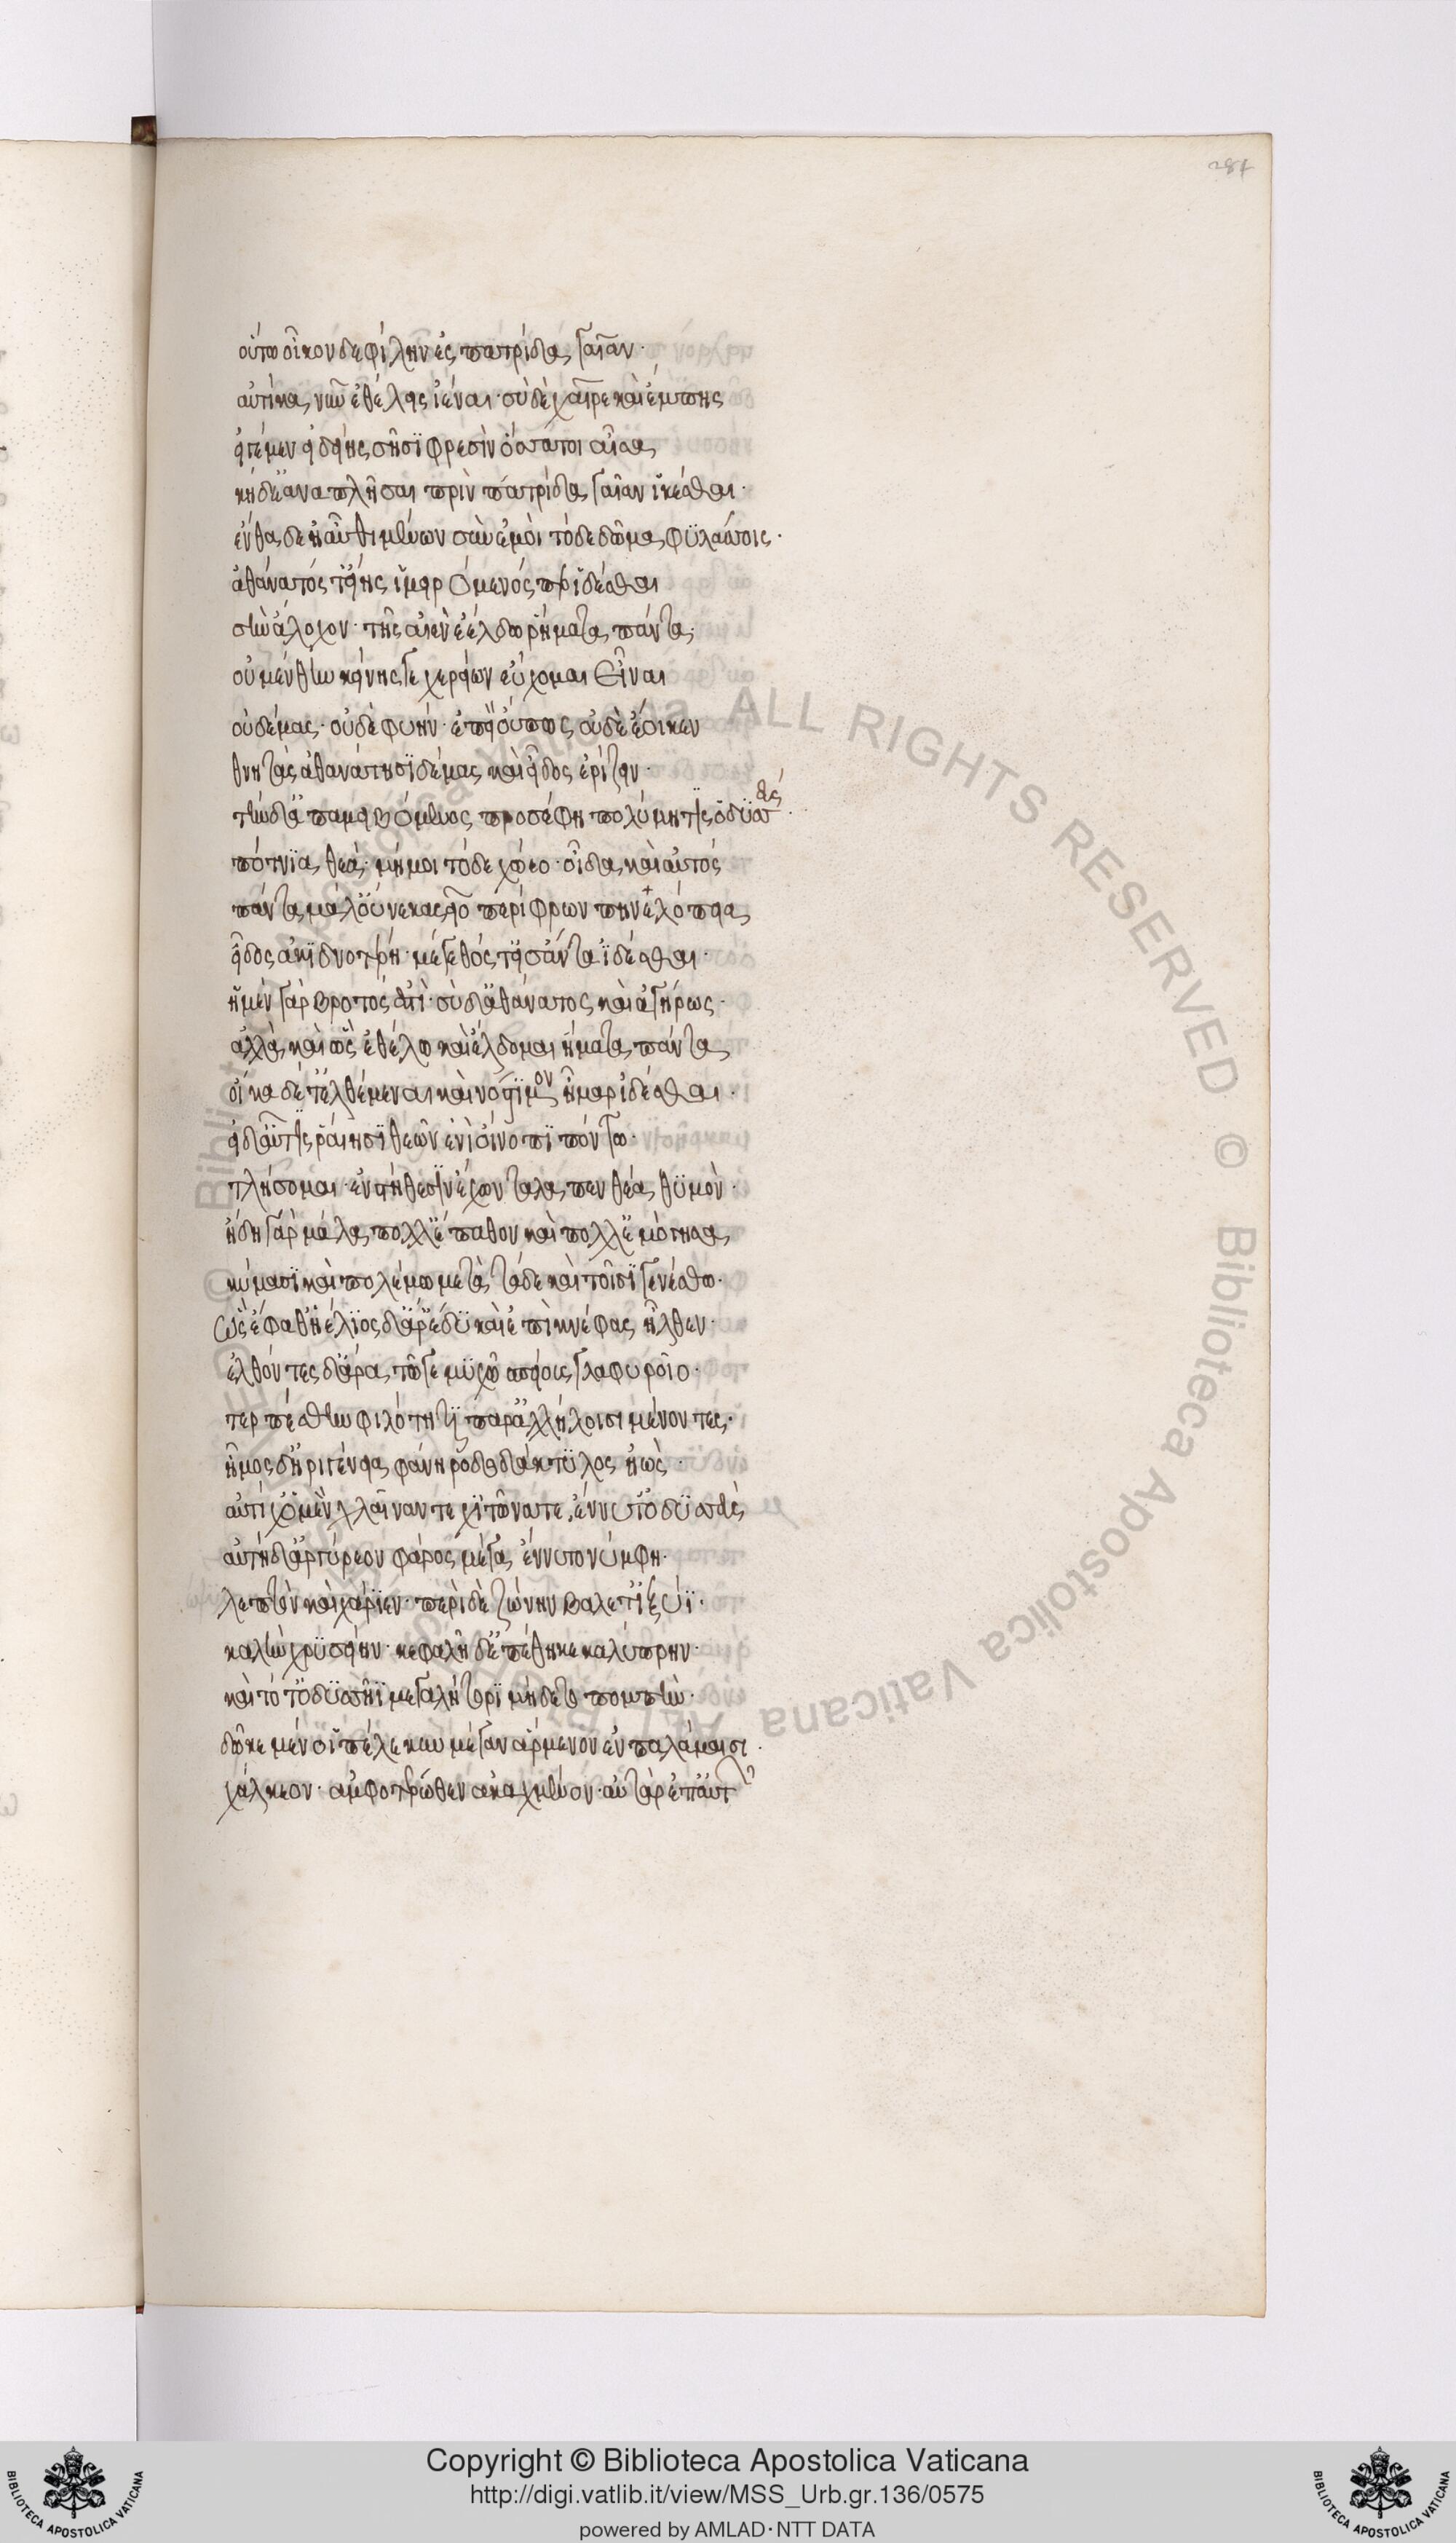 284
οὕτω οἶκον δε φίλην ἐς πατρίδα γαῖαν·
αὐτίκα νῦν ἐθέλεις ἰέναι· σὺ δὲ χαῖρε καὶ ἔμπης
εἴ γε μὲν εἰδείης σῇσϊ φρεσὶν ὅσσά τοι αἶσα
κήδε᾽ ἀναπλῆσαι πρὶν πατρίδα γαῖαν ἱκέσθαι·
ἐνθάδε κ᾽ αὖθι μένων σὺν ἐμοὶ τόδε δῶμα φϋλάσσοις·
ἀθάνατός τ᾽ εἴης ἱμειρόμενός περ ἰδέσθαι
σὴν ἄλοχον· τῆς αἰὲν ἐέλδεαι ἤματα πάντα·
οὐ μέν θην κείνης γε χερείων εὔχομαι εἶναι
οὐ δέμας· οὐδὲ φυήν· ἐπεὶ οὔπως οὐδὲ ἔοικεν
θνητὰς ἀθανάτησϊ δέμας καὶ εἶδος ἐρίζειν·
τὴν δ᾽ ἀπαμειβόμενος προσέφη πολύμητις ὀδϋσσεύς·
πότνϊα θεά· μή μοι τόδε χώεο· οἶδα καὶ αὐτός
πάντα μάλ᾽ οὕνεκα σεῖο περίφρων πηνελόπεια
εἶδος ἀκϊδνοτέρη· μέγεθός τ᾽ εἰσάντα ἰδέσθαι·
ἡ μὲν γὰρ βροτός ἐστι· σὺ δ᾽ ἀθάνατος καὶ ἀγήρως·
ἀλλὰ καὶ ὧς ἐθέλω καὶ ἐέλδομαι ἤματα πάντα
οἴκαδέ τ᾽ ἐλθέμεναι καὶ νόστϊμον ἦμαρ ἰδέσθαι·
εἰ δ᾽ αὖ τις ῥαίησϊ θεῶν ἐνὶ οἴνοπϊ πόντω·
τλήσομαι· ἐν στήθεσϊν ἔχων ταλαπενθέα θϋμὸν·
ἤδη γὰρ μάλα πολλ᾽ ἔπαθον καὶ πολλ᾽ ἐμόγησα
κύμασϊ καὶ πολέμω μετὰ τάδε καὶ τοῖσϊ γενέσθω·
ὣς ἔφατ᾽ ἠέλϊος δ᾽ ἄρ᾽ ἔδϋ καὶ ἐπὶ κνέφας ἦλθεν·
ἐλθόντες δ᾽ ἄρα τώ γε μϋχῶ σπείους γλαφυροῖο·
τερπέσθην φιλότητϊ παρ᾽ ἀλλήλοισι μένοντες·
ἦμος δ᾽ ἠριγένεια φάνη ῥοδοδάκτϋλος ἠὼς·
αὐτίχ᾽ ὁ μὲν χλαῖναν τε χϊτῶνα τε ἕννυτ᾽ ὀδϋσσεὺς
αὐτὴ δ᾽ ἀργύρεον φάρος μέγα ἕννυτο νύμφη·
λεπτὸν καὶ χάρϊεν· περὶ δὲ ζώνην βάλετ᾽ ἰξύϊ·
καλὴν χρϋσείην· κεφαλῆ δ᾽ ἐπέθηκε καλύπρην·
καὶ τότ᾽ ὀδϋσσῆϊ μεγαλήτορϊ μήδετο πομπὴν·
δῶκε μέν οἱ πέλεκυν μέγαν ἄρμενον ἐν παλάμαισι·
χάλκεον· ἀμφοτέρωθεν ἀκαχμένον· αὐτὰρ ἐπ᾽ αὐτῶ
© Biblioteca Apostolica Vaticana ALL RIGHTS RESERVED © Biblioteca Apostolica Vaticana ALL RIGHTS RESERVED
Copyright © Biblioteca Apostolica Vaticana
http://digi.vatlib.it/view/MSS_Urb.gr.136/0575
powered by AMLAD·NTT DATA
BIBLIOTECA APOSTOLICA VATICANA
BIBLIOTECA APOSTOLICA VATICANA